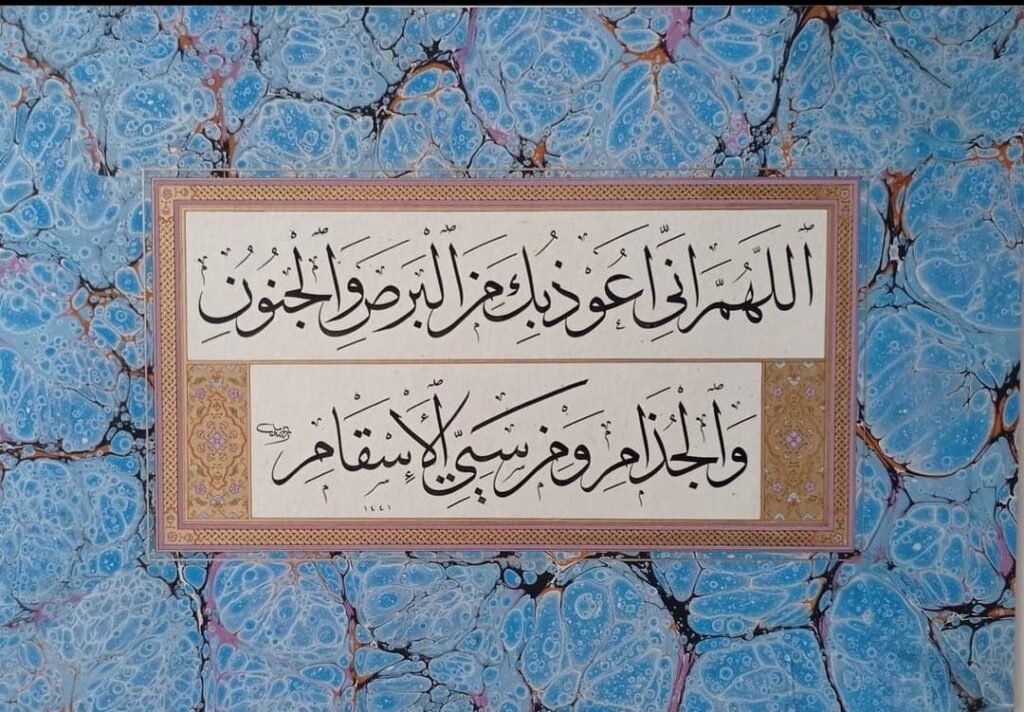 اللَّهُمَّ اِنِّي اَعُوْذُ بِكَ مِنَ الْبَرَصِ وَالْجُنُونِ
وَالْجُذَامِ وَمِنْ سَيِّئِ الْأَسْقَامِ
١٤٤١